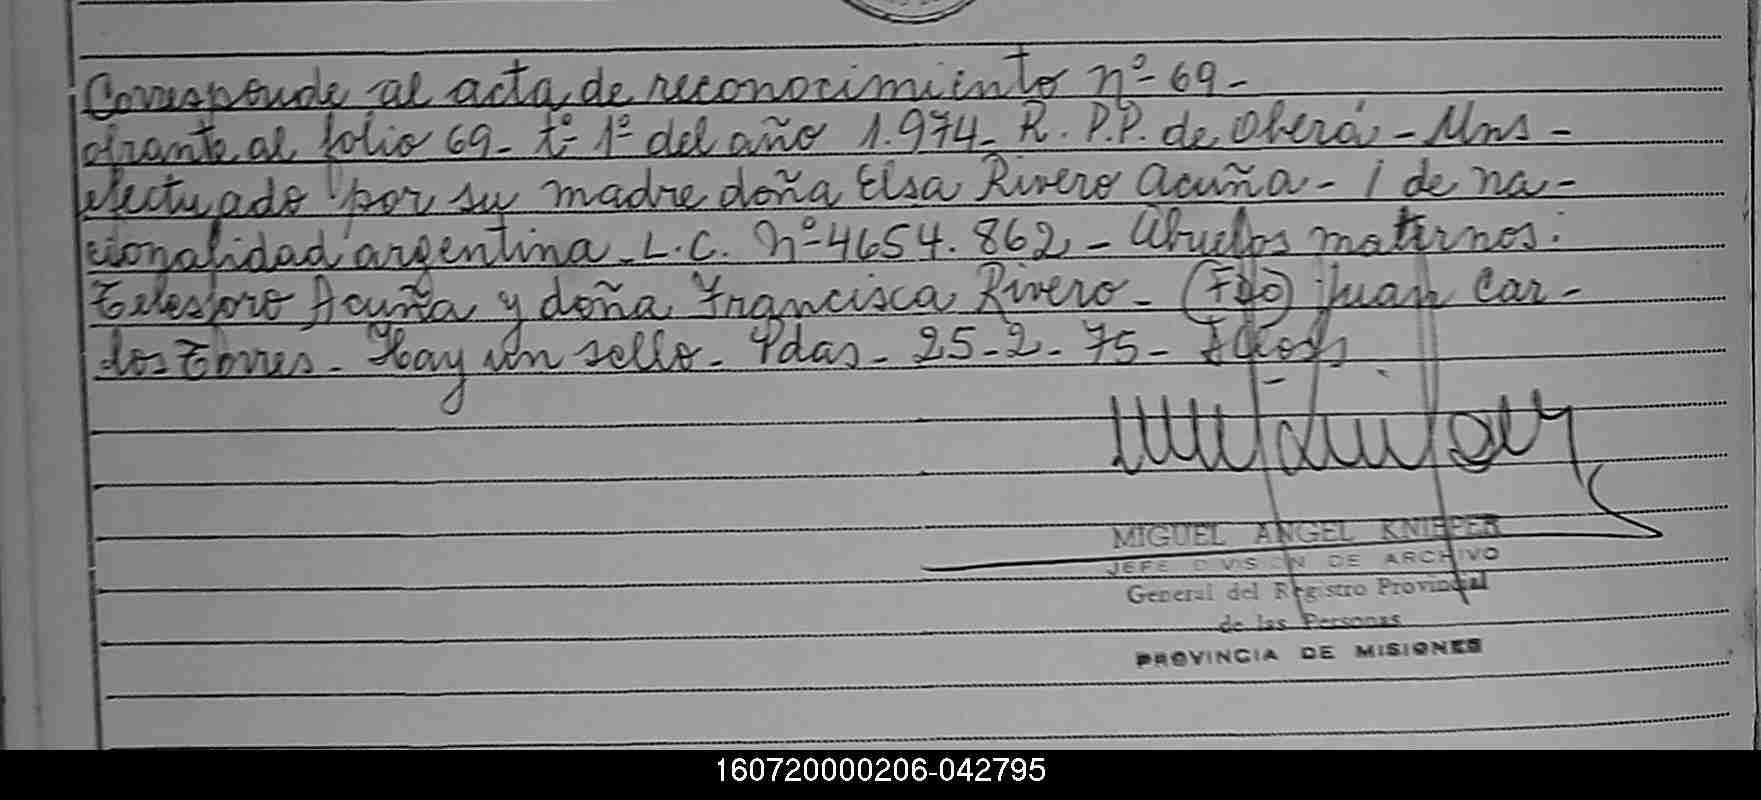 Corresponde al acta de reconocimiento nº- 69-
obrante al folio 69- tº 1º del año 1.974- R. P.P. de Oberá - Mns -
efectuado por su madre doña Elsa Rivero Acuña - / de na-
cionalidad argentina - L.C. Nº 4654.862 - Abuelos maternos:
Telesforo Acuña y doña Francisca Rivero - (Fdo) Juan Car-
los Torres - Hay un sello - Pdas - 25-2-75-
MIGUEL ANGEL KNIEPER
JEFE DIVISION DE ARCHIVO
General del Registro Provincial
de las Personas
PROVINCIA DE MISIONES
160720000206-042795